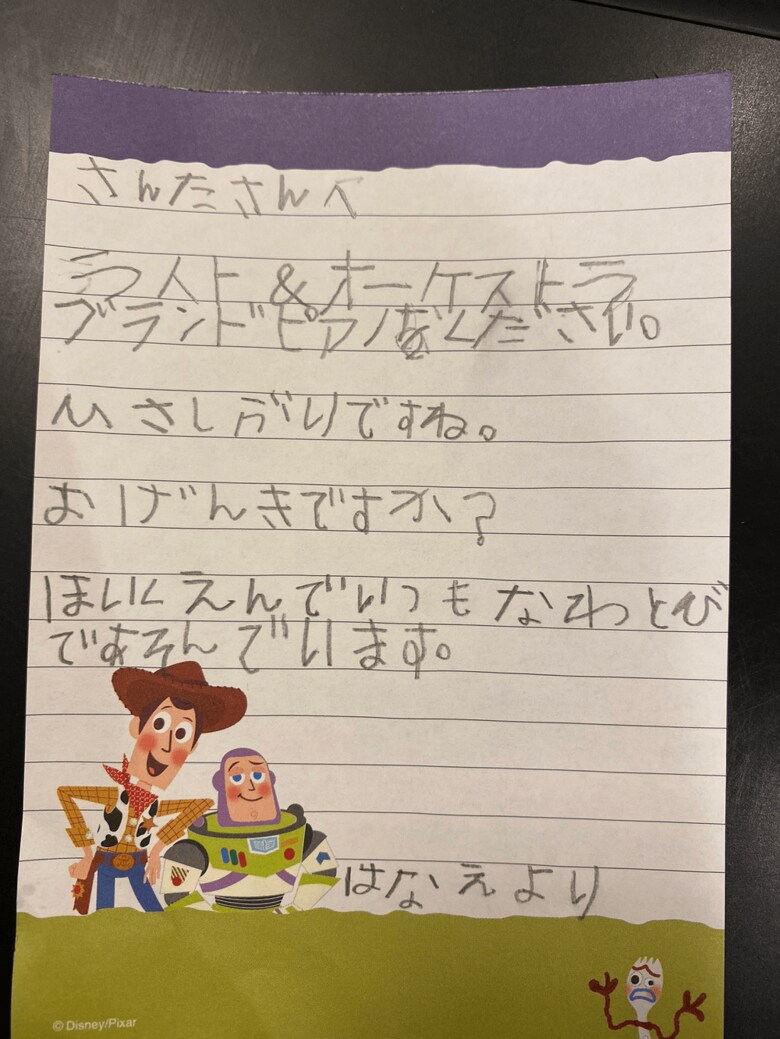 さんたさんへ
ライト&オーケストラ
ブランドピアノをください。
ひさしぶりですね。
おげんきですか?
ほいくえんでいつもなわとび
であそんでいます。
はなえより
© Disney/Pixar